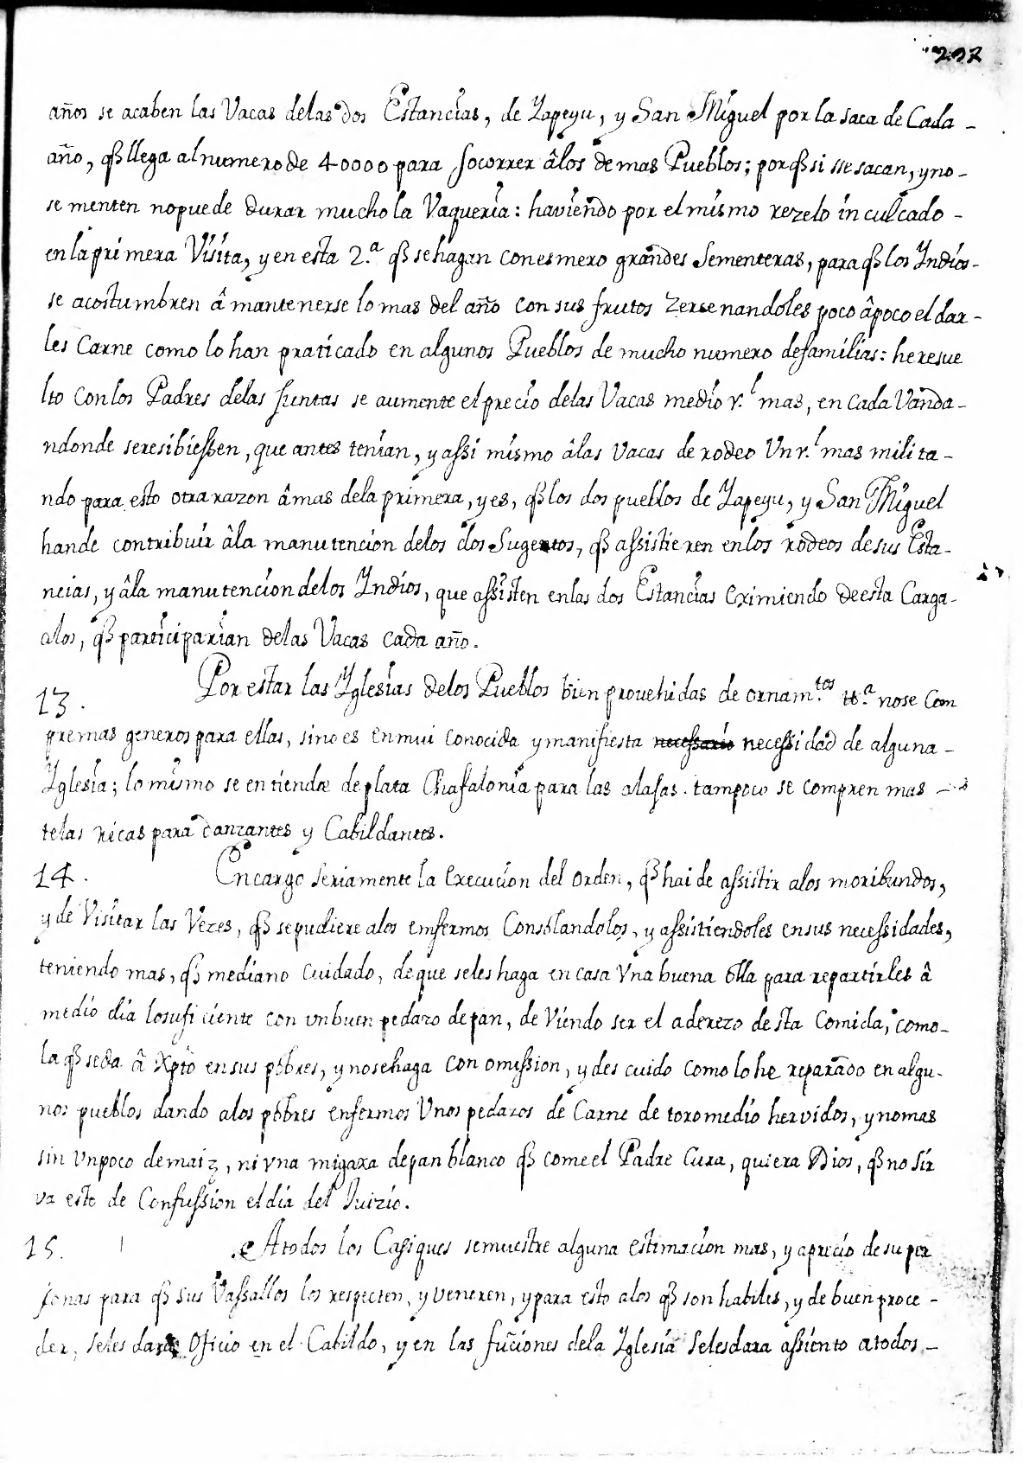 202
años se acaben las Vacas delas dos Estancias, de Yapeyu, y San Miguel por la saca de Cada
año, q̃ llega al numero de 40000 para socorrer âlos demas Pueblos; porq̃ si se sacan, y no
se menten nopuede durar mucho la Vaqueria: haviendo por el mismo rezelo inculcado
enla primera Visita, y en esta 2.ª q̃ se hagan con esmero grandes Sementeras, para q̃ los Yndios
se acostumbren â mantenerse lo mas del año con sus frutos Zersenandoles poco âpoco el dar
les Carne como lo han praticado en algunos Pueblos de mucho numero defamilias: he resue
lto Con los Padres delas Juntas se aumente el precio delas Vacas medio r.l mas, en Cada Vanda
ndonde seresibiessen, que antes tenian, y assi mismo âlas Vacas de rodeo Vn r.l mas milita
ndo para esto otra razon âmas dela primera, y es, q̃ los dos pueblos de Yapeyu, y San Miguel
hande contribuir âla manutencion delos dos Sugetos, q̃ assistieren enlos rodeos de sus Esta
ncias, y âla manutencion delos Yndios, que assisten enlas dos Estancias Eximiendo deesta Carga
alos, q̃ participarian delas Vacas cada año.
13. Por estar las Yglesias delos Pueblos bien provehidas de ornam.tos tt.ª nose Com
premas generos para ellas, sino es enmui Conocida y manifiesta necessario necessidad de alguna
Yglesia; lo mismo se entiende de plata Chafalonia para las alajas. tampoco se compren mas
telas ricas para danzantes y Cabildantes.
14. Encargo seriamente la Execucion del Orden, q̃ hai de assistir alos moribundos,
y de Visitar las Vezes, q̃ sepudiere alos enfermos Consolandolos, y assistiendoles ensus necessidades,
teniendo mas, q̃ mediano Cuidado, deque seles haga en casa Vna buena Olla para repartirles â
medio dia losuficiente con vnbuen pedazo depan, deviendo ser el aderezo desta Comida, como
la q̃ seda â Xpto ensus pobres, y nosehaga con omission, y descuido como lo he reparado en algu
nos pueblos dando alos pobres enfermos Vnos pedazos de Carne de toro medio hervidos, y nomas
sin vnpoco demaiz, ni vna migaxa depan blanco q̃ come el Padre Cura, quiera Dios, q̃ no sir
va esto de Confussion el dia del Juizio.
15. Atodos los Casiques semuestre alguna estimacion mas, y aprecio de su per
sonas para q̃ sus Vassallos los respecten, y veneren, y para esto alos q̃ son habiles, y de buen proce
der, seles dara Oficio en el Cabildo, y en las fuñciones dela Yglesia Selesdara assiento atodos